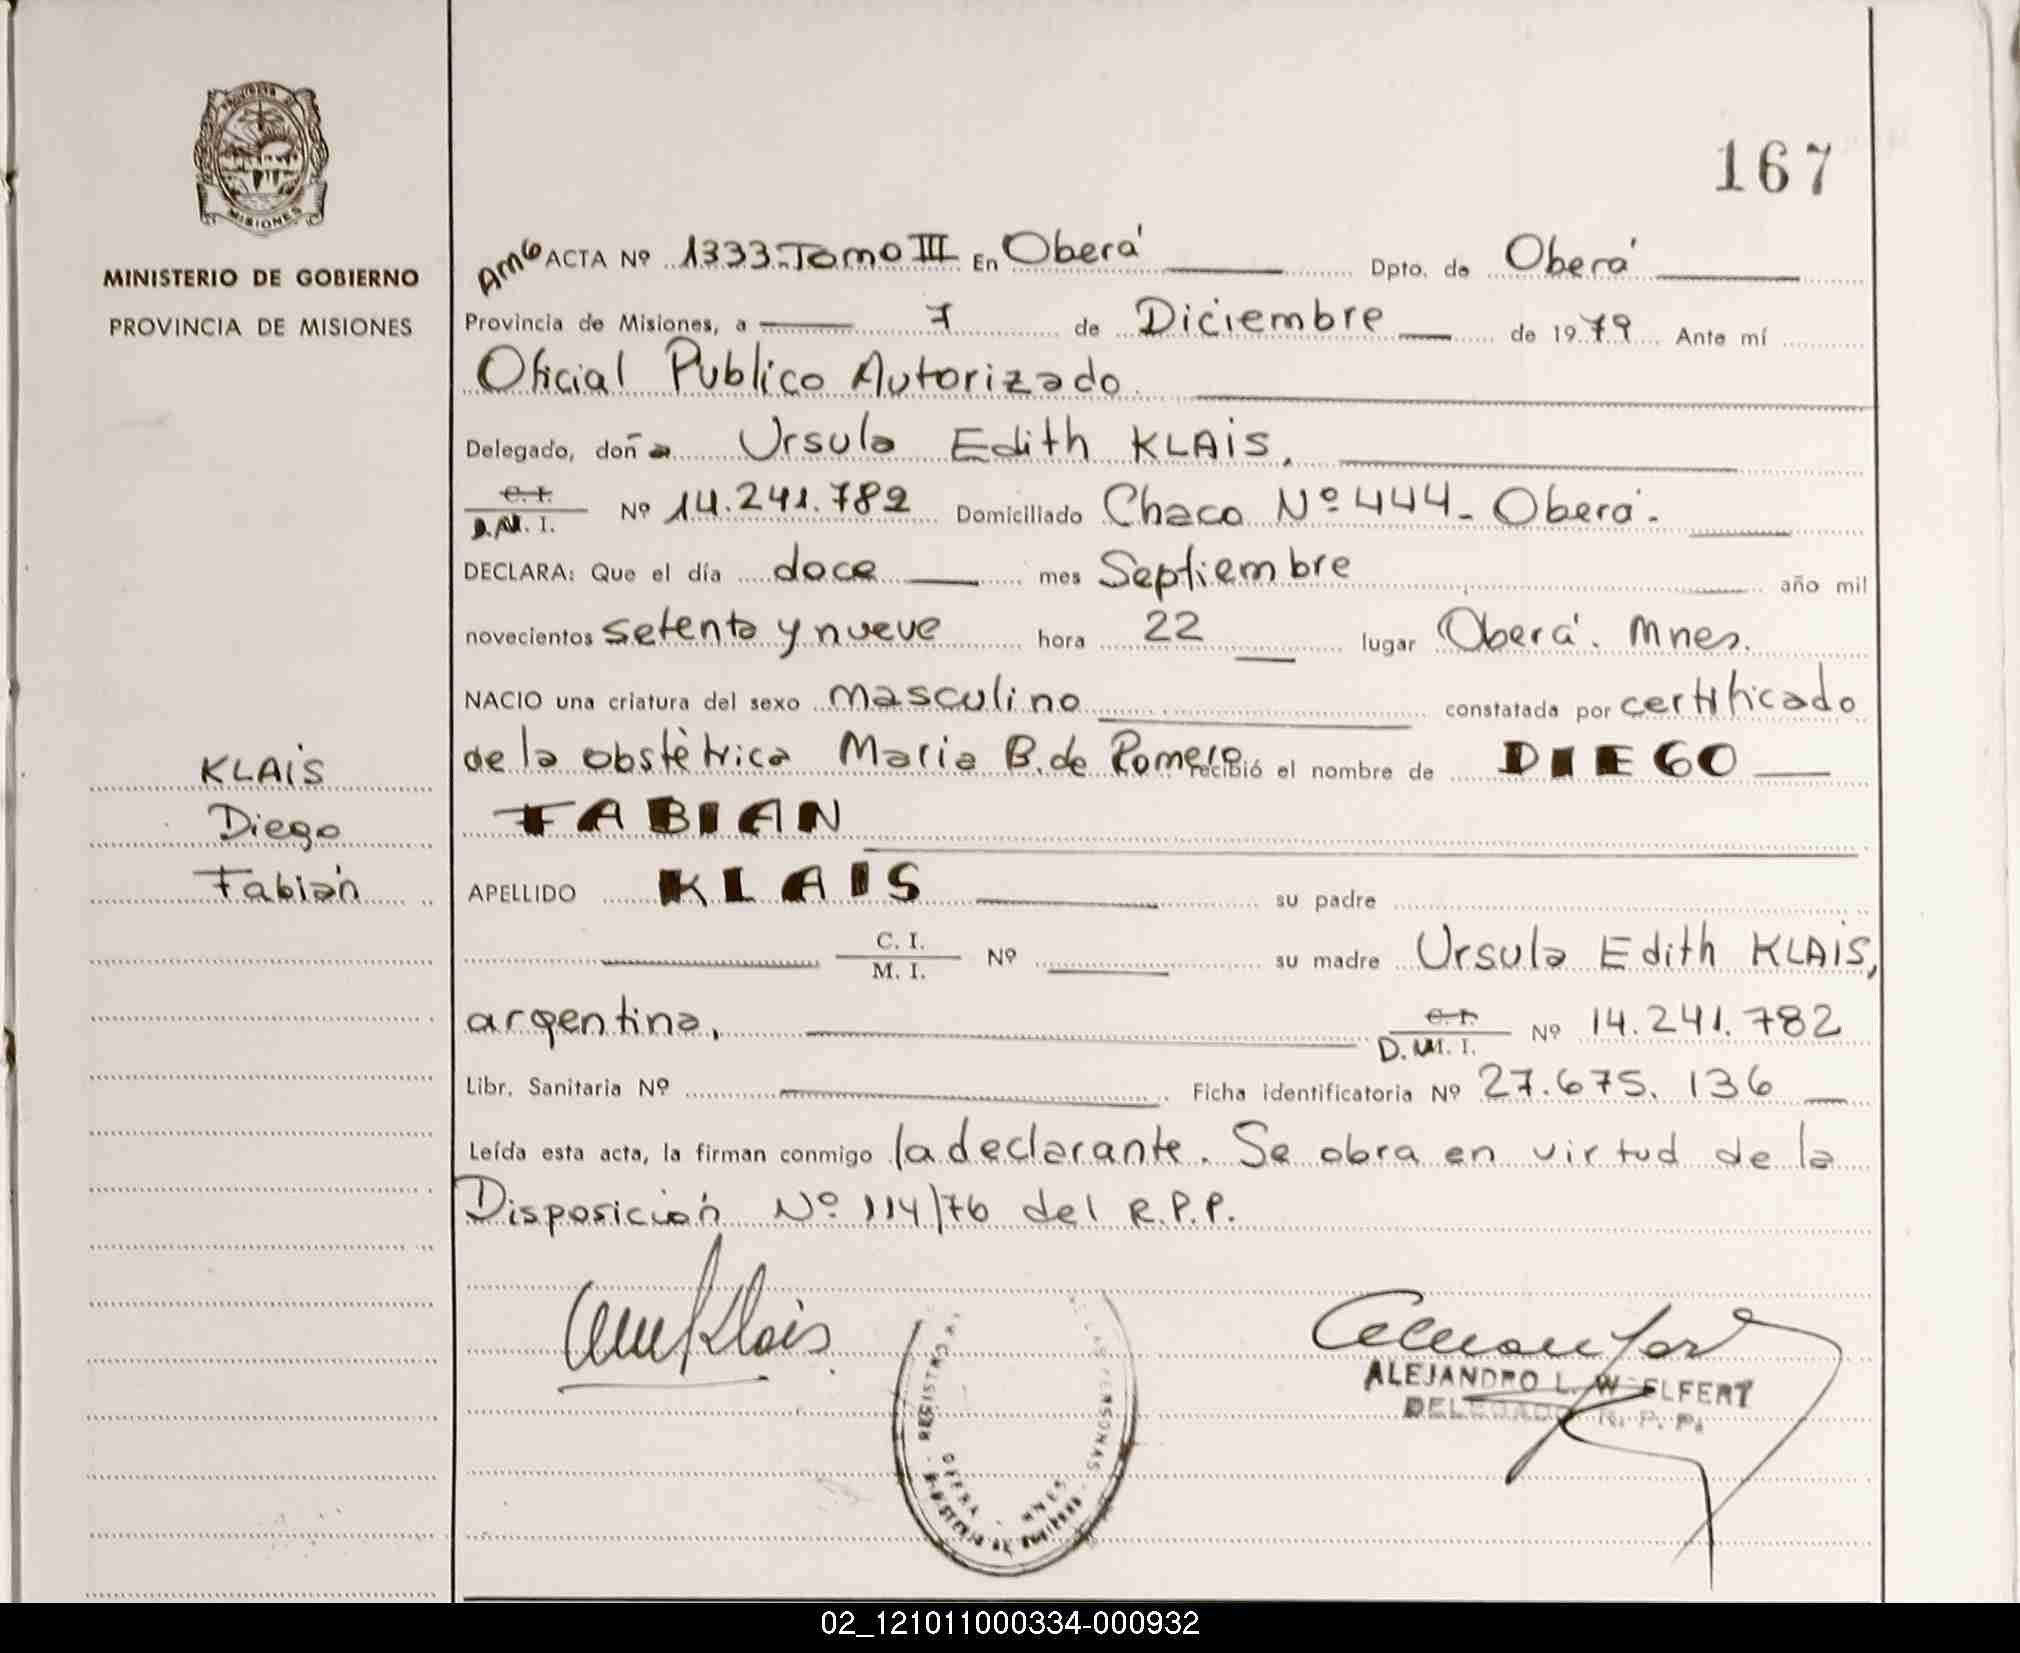 PROVINCIA DE
MISIONES
MINISTERIO DE GOBIERNO
PROVINCIA DE MISIONES
KLAIS
Diego
Fabián
167
AMG ACTA Nº 1333-Tomo III En Oberá Dpto. de Oberá
Provincia de Misiones, a 7 de Diciembre de 1979 Ante mí
Oficial Publico Autorizado
Delegado, doña Ursula Edith KLAIS,
C. I.
D.N. I. Nº 14.241.782 Domiciliado Chaco Nº 444- Oberá-
DECLARA: Que el día doce mes Septiembre año mil
novecientos setenta y nueve hora 22 lugar Oberá. Mnes.
NACIO una criatura del sexo masculino constatada por certificado
de la obstétrica Maria B. de Romero recibió el nombre de DIEGO
FABIAN
APELLIDO KLAIS su padre
C. I.
M. I. Nº su madre Ursula Edith KLAIS,
argentina, C. I.
D. M. I. Nº 14.241.782
Libr. Sanitaria Nº Ficha identificatoria Nº 27.675.136
Leída esta acta, la firman conmigo la declarante. Se obra en virtud de la
Disposición Nº 114/76 del R.P.P.
Klais
REGISTRO LAS PERSONAS
OBERA - MNES
MINISTERIO DE GOBIERNO
ALEJANDRO L. WELFERT
DELEGADO R. P. P.
02_121011000334-000932